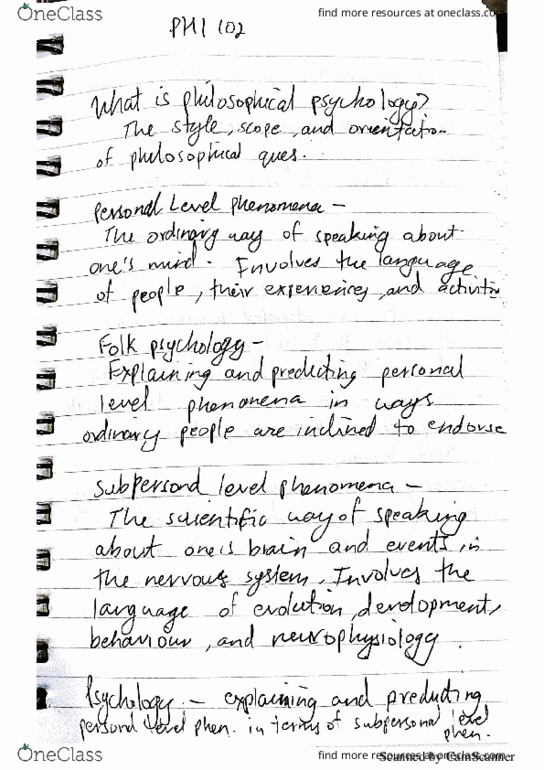 OneClass
find more resources at oneclass.com
PHI 102
What is philosophical psychology?
The style, scope, and orientation
of philosophical ques.
Personal Level phenomena –
The ordinary way of speaking about
one's mind. Involves the language
of people, their experiences, and activities
Folk psychology –
Explaining and predicting personal
level phenomena in ways
ordinary people are inclined to endorse
Subpersonal level phenomena –
The scientific way of speaking
about one's brain and events in
the nervous system. Involves the
language of evolution, development,
behaviour, and neurophysiology.
Psychology – explaining and predicting
personal level phen. in terms of subpersonal level
phen.
OneClass
find more resources at oneclass.com
Scanned by CamScanner